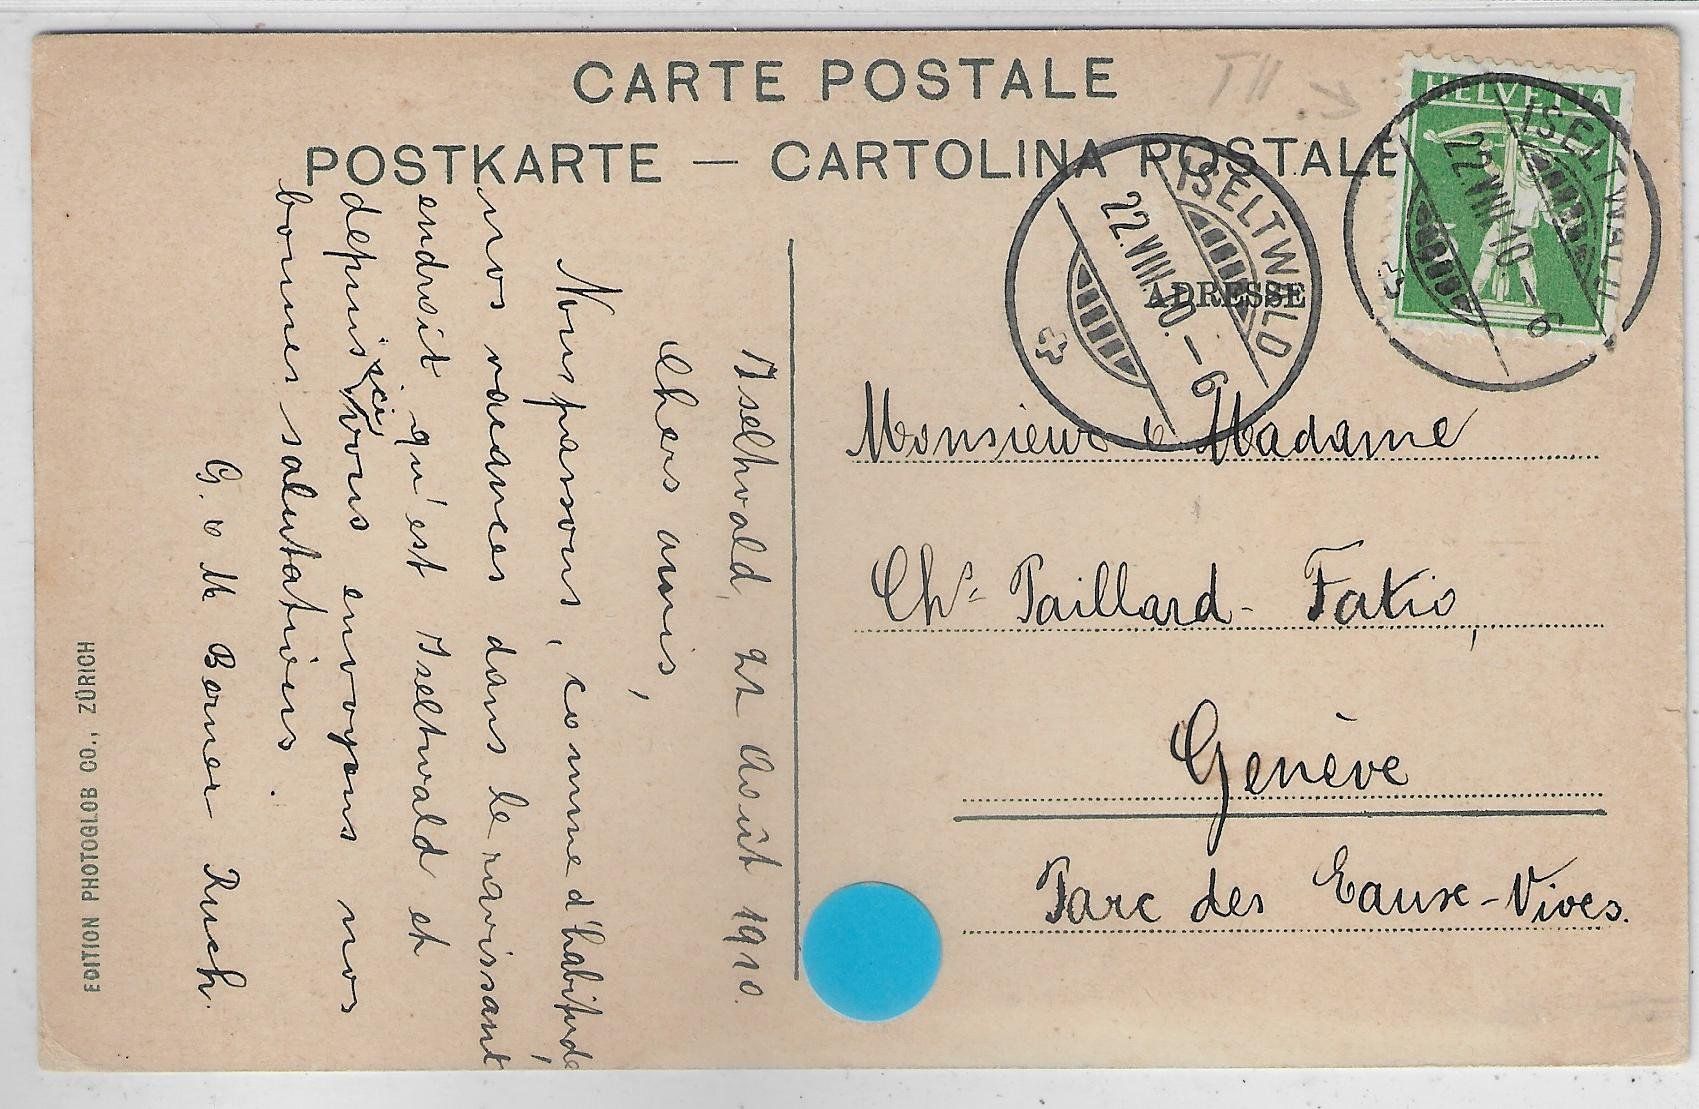 CARTE POSTALE
POSTKARTE — CARTOLINA POSTALE
HELVETIA
ISELTWALD
22.VIII.10.-6
ISELTWALD
22.VIII.10.-6
ADRESSE
Monsieur & Madame
Chs Paillard-Fatio,
Genève
Parc des Eaux-Vives.
Iseltwald, 21 Août 1910.
Chers amis,
Nous passons, comme d'habitude,
nos vacances dans le ravissant
endroit qu'est Iseltwald et
depuis ici vous envoyons nos
bonnes salutations.
G. & M Borner Ruch.
EDITION PHOTOGLOB CO., ZÜRICH